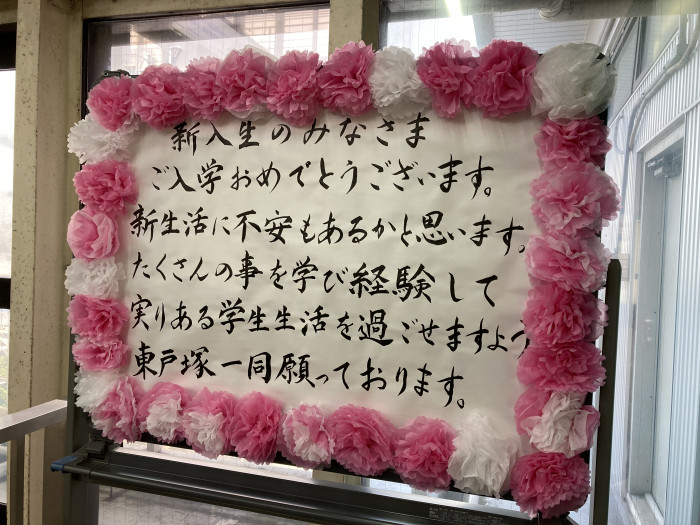 新入生のみなさま
ご入学おめでとうございます。
新生活に不安もあるかと思います。
たくさんの事を学び経験して
実りある学生生活を過ごせますよう
東戸塚一同願っております。